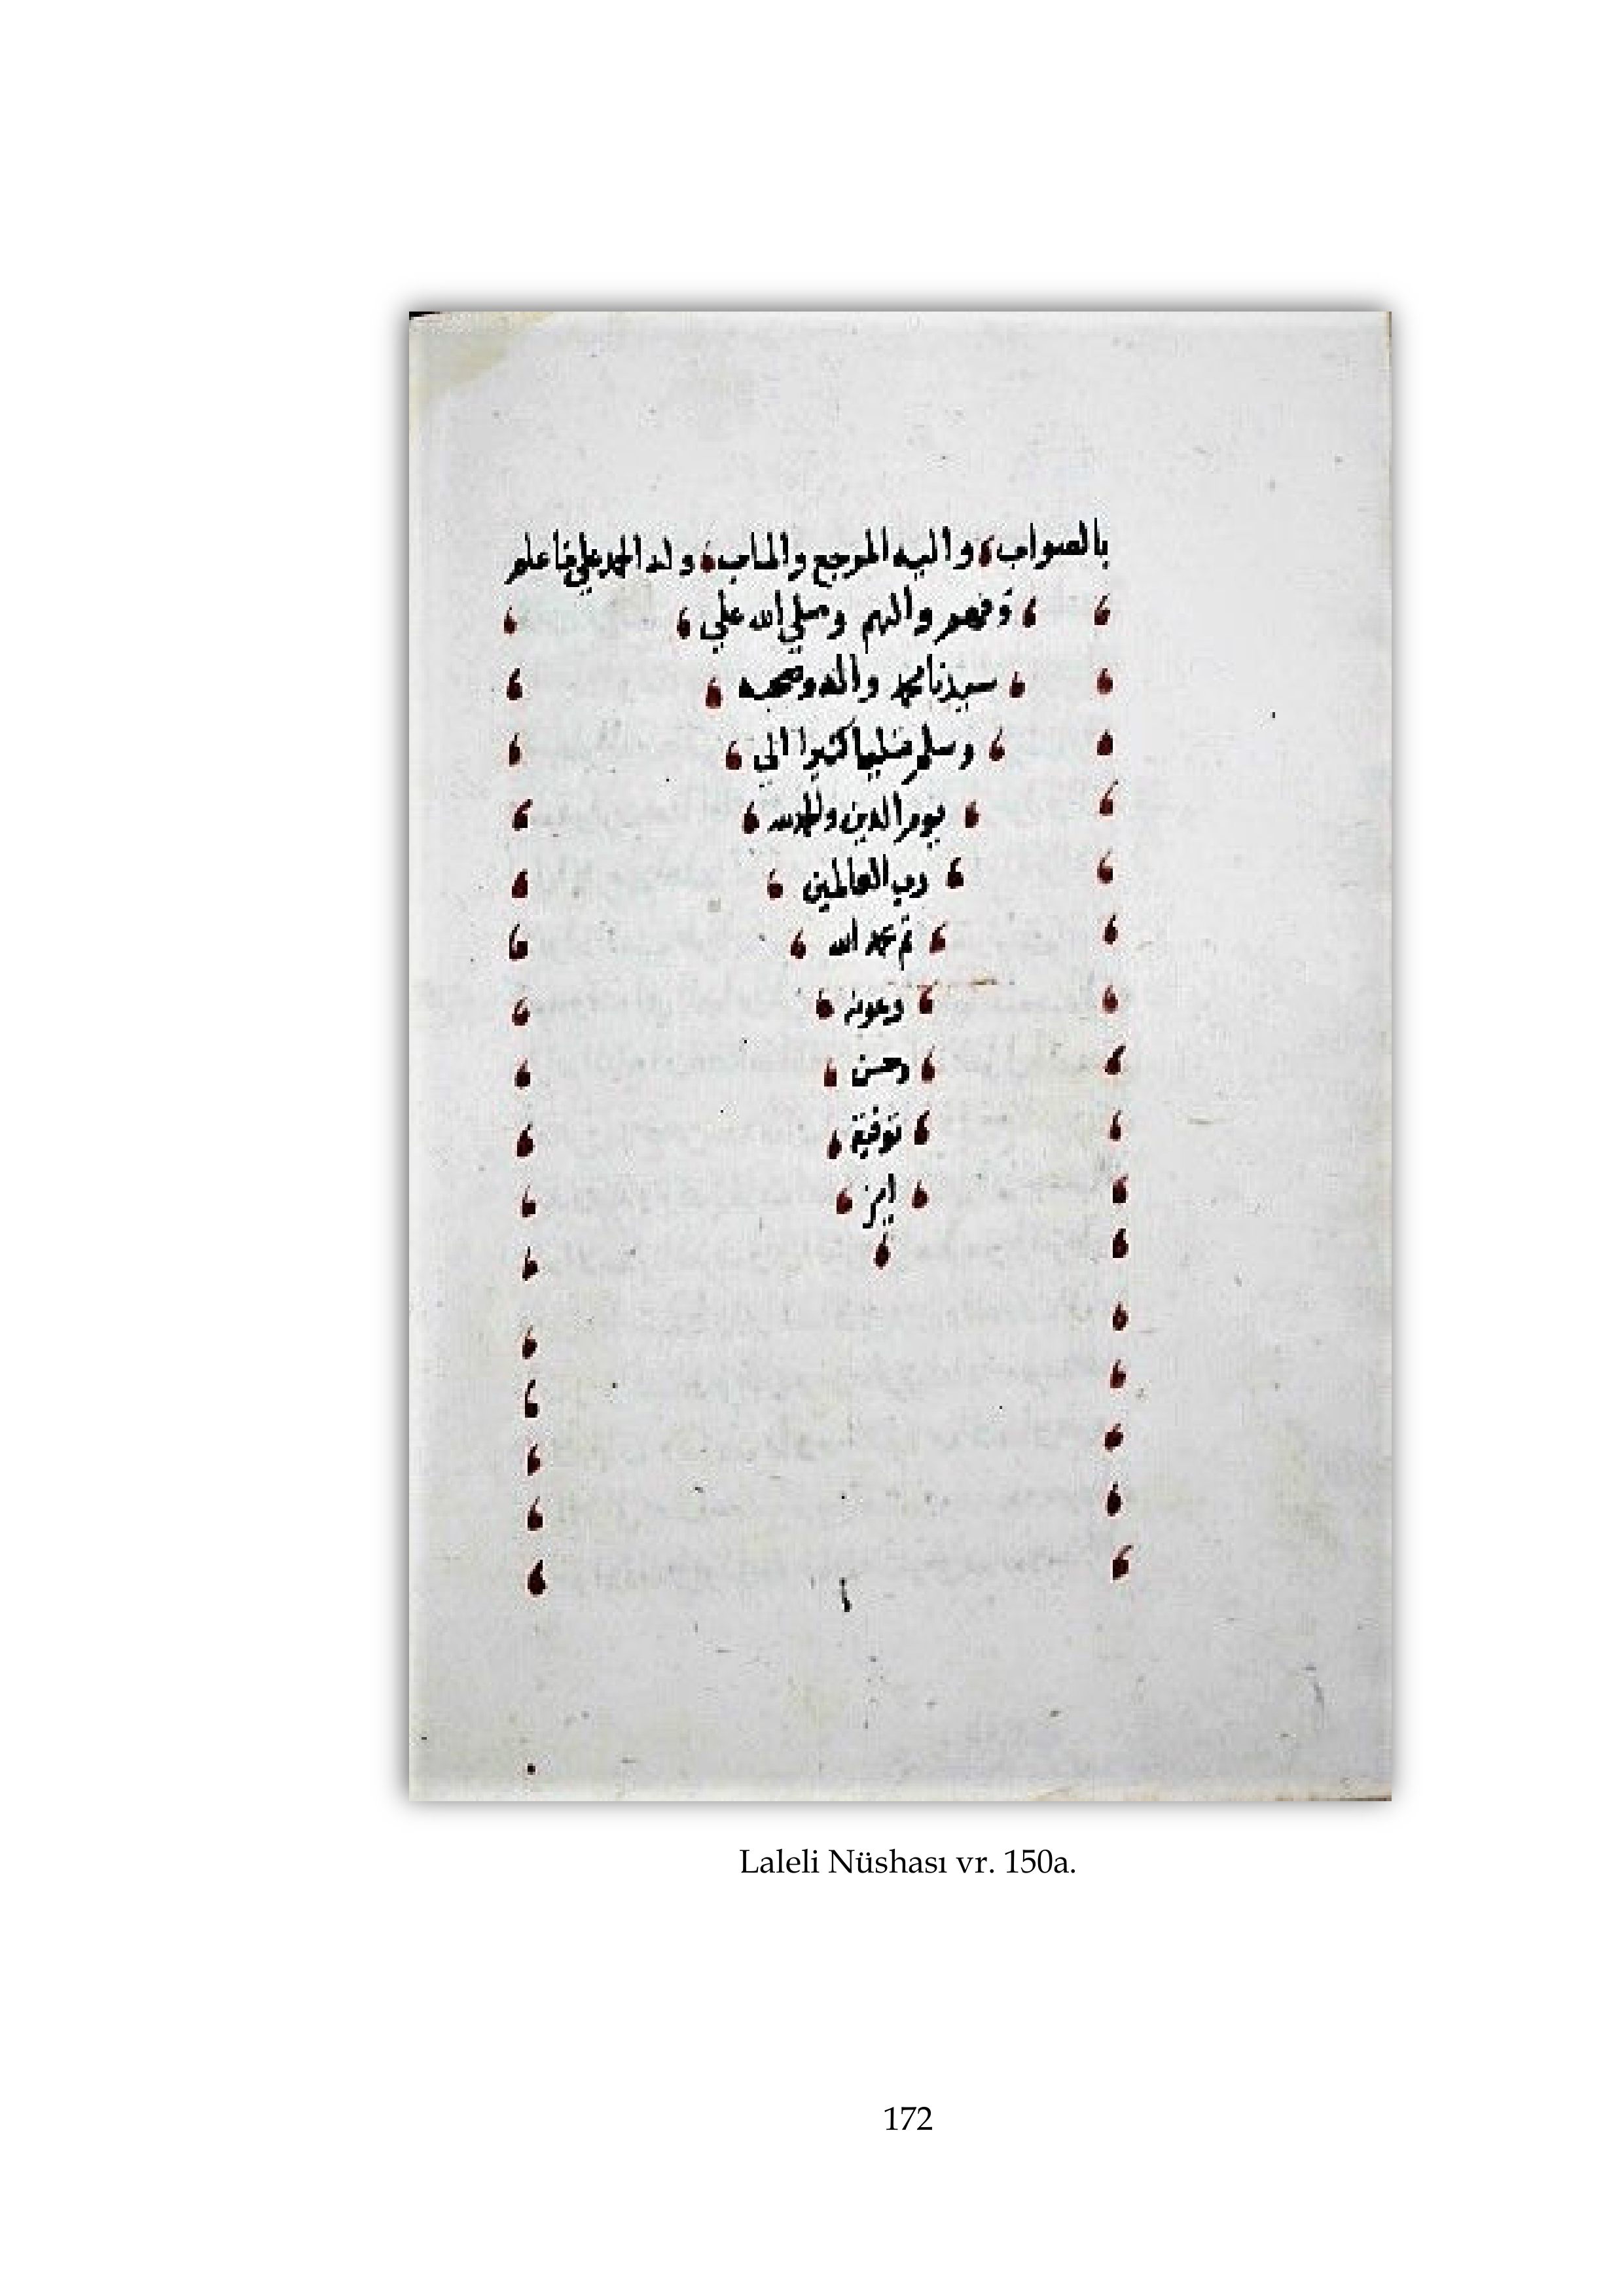 بالصواب واليه المرجع والماب وله الحمد على ما علم
وفهم والهم وصلي الله علي
سيدنا محمد واله وصحبه
وسلم تسليما كثيرا الي
يوم الدين والحمد لله
رب العالمين
تم بحمد الله
وعونه
وحسن
توفيق
Laleli Nüshası vr. 150a.
172